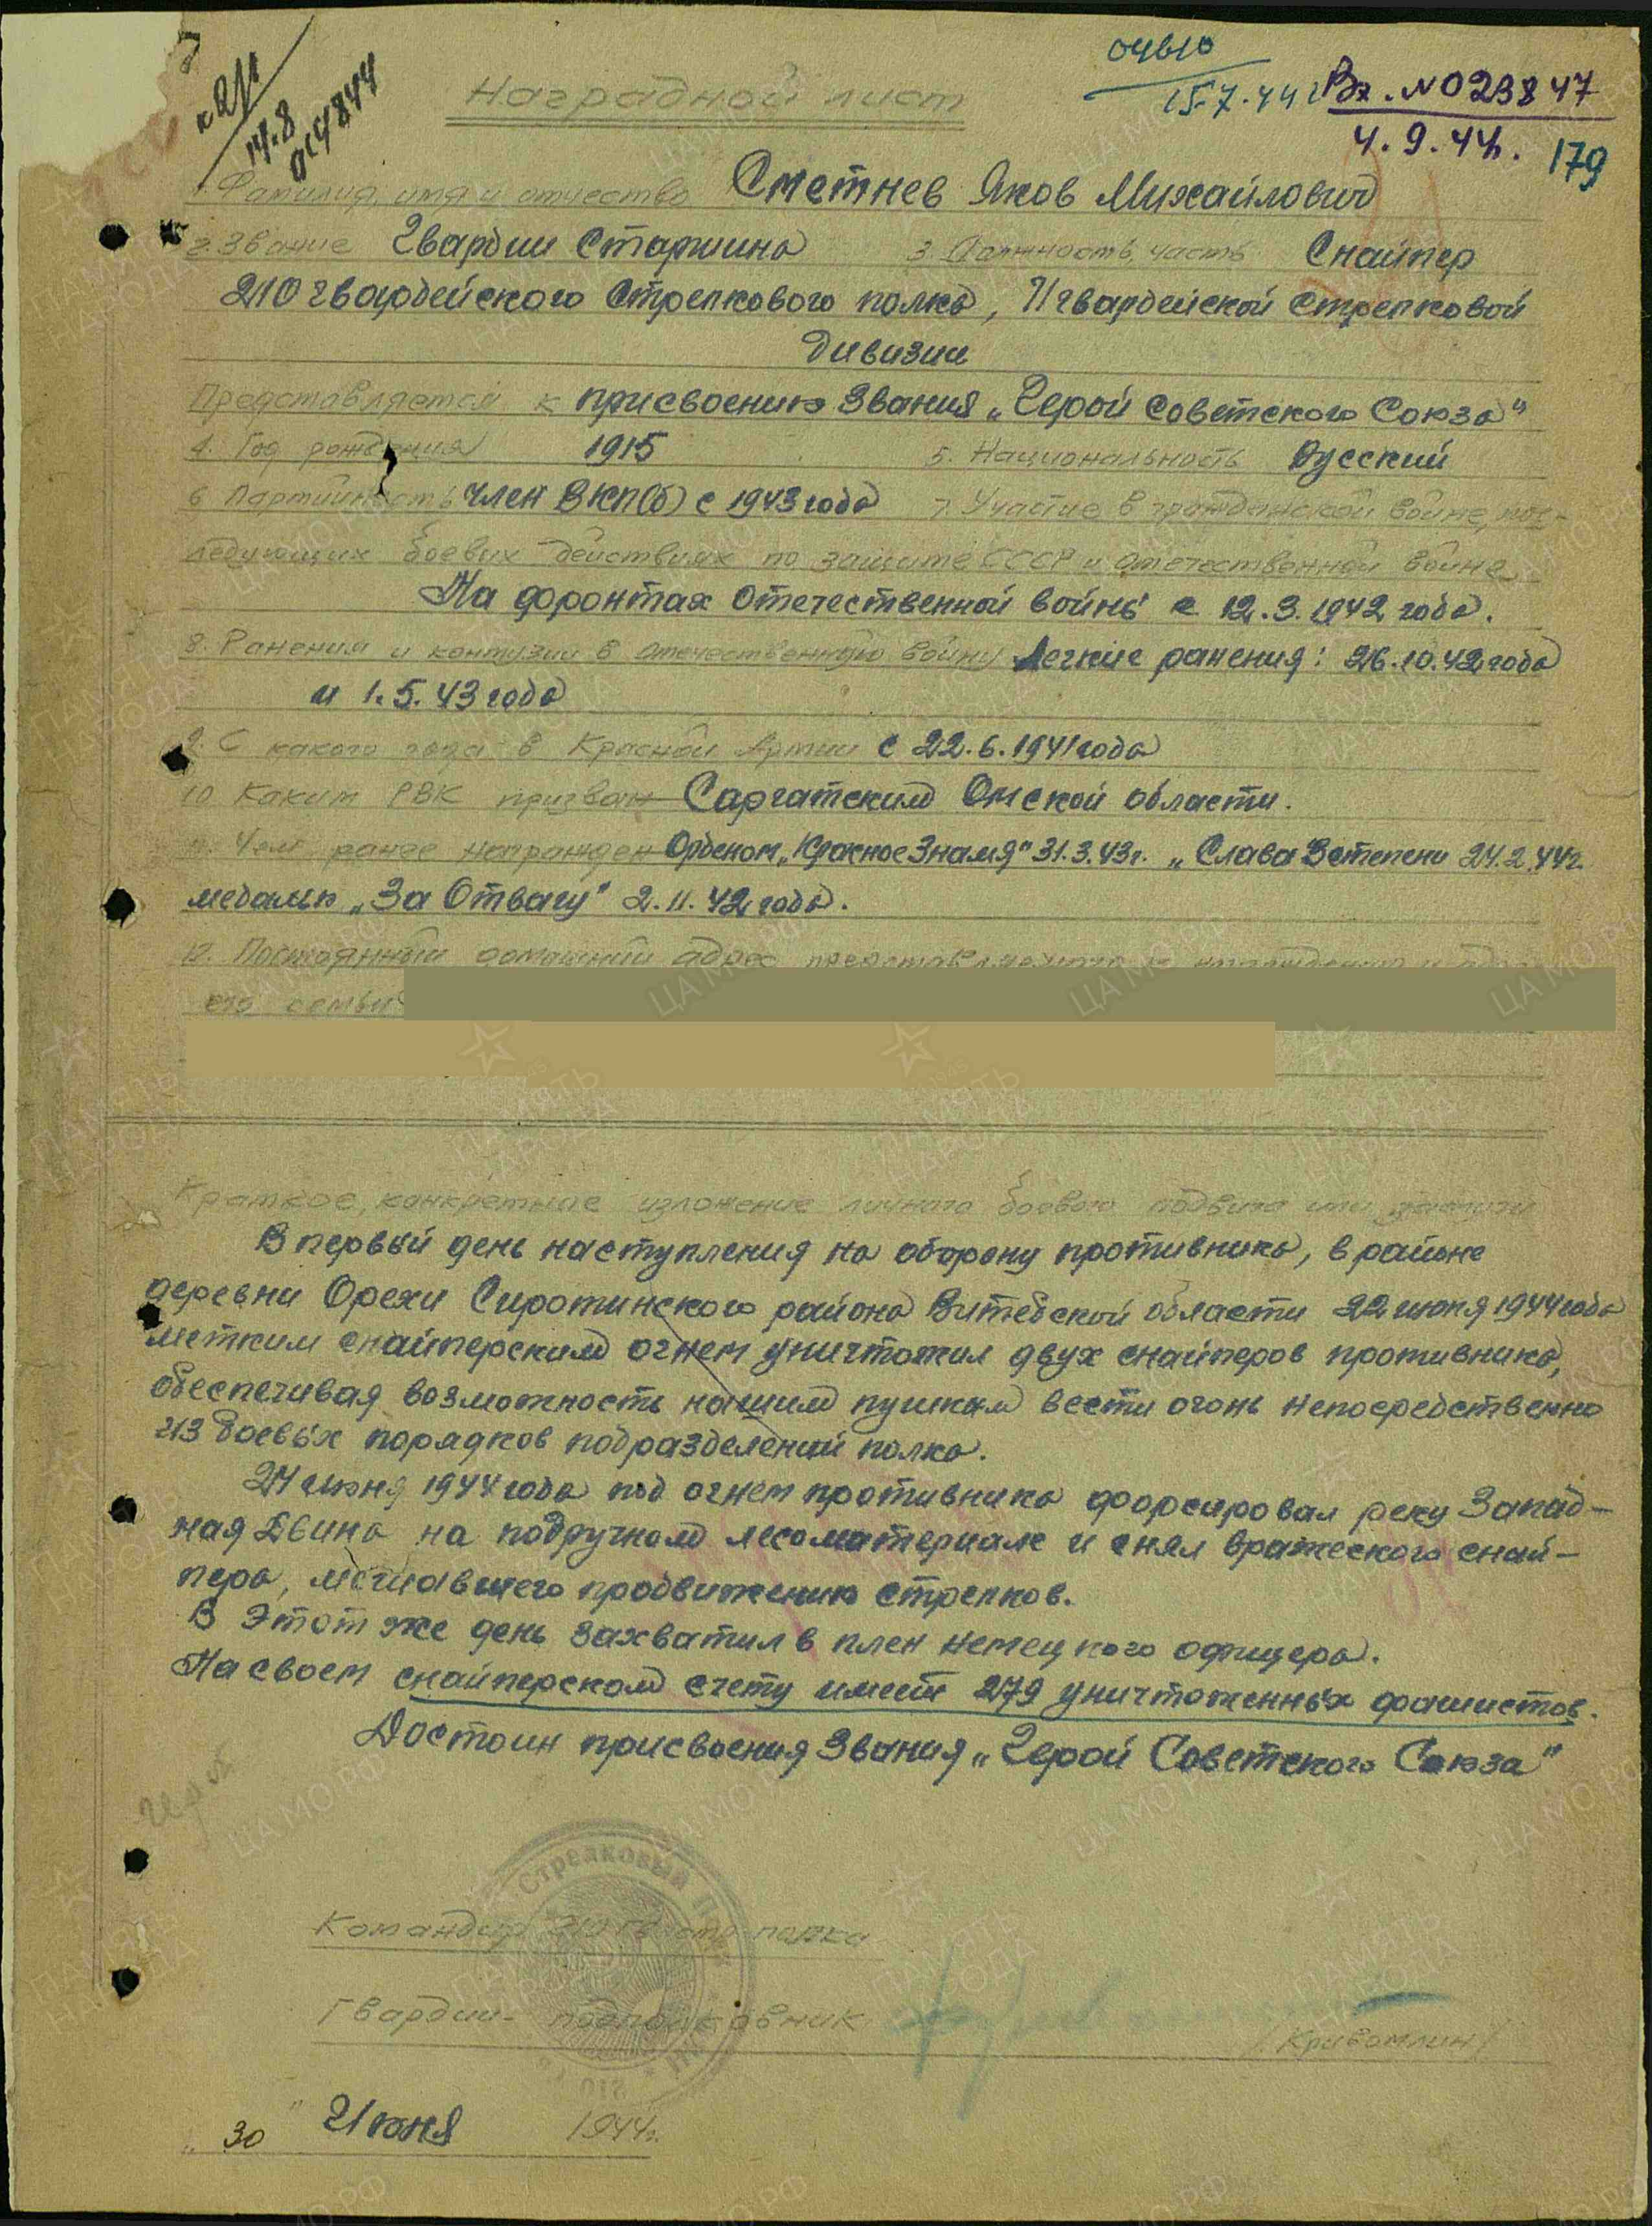 04610
15.7.44г
Вх. №023847
4.9.44г.
179
14.8
Наградной лист
1. Фамилия, имя и отчество Сметнев Яков Михайлович
2. Звание Гвардии Старшина 3. Должность, часть Снайпер
210 гвардейского Стрелкового полка, 71 гвардейской стрелковой
дивизии
Представляется к присвоению Звания „Герой Советского Союза"
4. Год рождения 1915 5. Национальность Русский
6 Партийность Член ВКП(б) с 1943 года 7. Участие в гражданской войне, пос-
ледующих боевых действиях по защите СССР и отечественной войне
На фронтах Отечественной войны с 12.3.1942 года.
8. Ранения и контузии в отечественную войну Легкие ранения: 26.10.42 года
и 1.5.43 года
9. С какого года в Красной Армии с 22.6.1941 года
10 Каким РВК призван Саргатским Омской области.
11. Чем ранее награжден Орденом „Красное Знамя" 31.3.43г. „Слава 3 степени 24.2.44г.
медалью „За Отвагу" 2.11.42 года.
12. Постоянный домашний адрес представляемого к награждению и адрес
его семьи
Краткое, конкретное изложение личного боевого подвига или заслуги
В первый день наступления на оборону противника, в районе
деревни Орехи Сиротинского района Витебской области 22 июня 1944 года
метким снайперским огнем уничтожил двух снайперов противника,
обеспечивая возможность нашим пушкам вести огонь непосредственно
из боевых порядков подразделений полка.
24 июня 1944 года под огнем противника форсировал реку Запад-
ная Двина на подручном лесоматериале и снял вражеского снай-
пера, мешавшего продвижению стрелков.
В Этот же день захватил в плен немецкого офицера.
На своем снайперском счету имеет 279 уничтоженных фашистов.
Достоин присвоения Звания „Герой Советского Союза"
Стрелковый
Командир 210 гв. стр. полка
Гвардии- подполковник /Кривомлин/
„30" Июня 1944г.